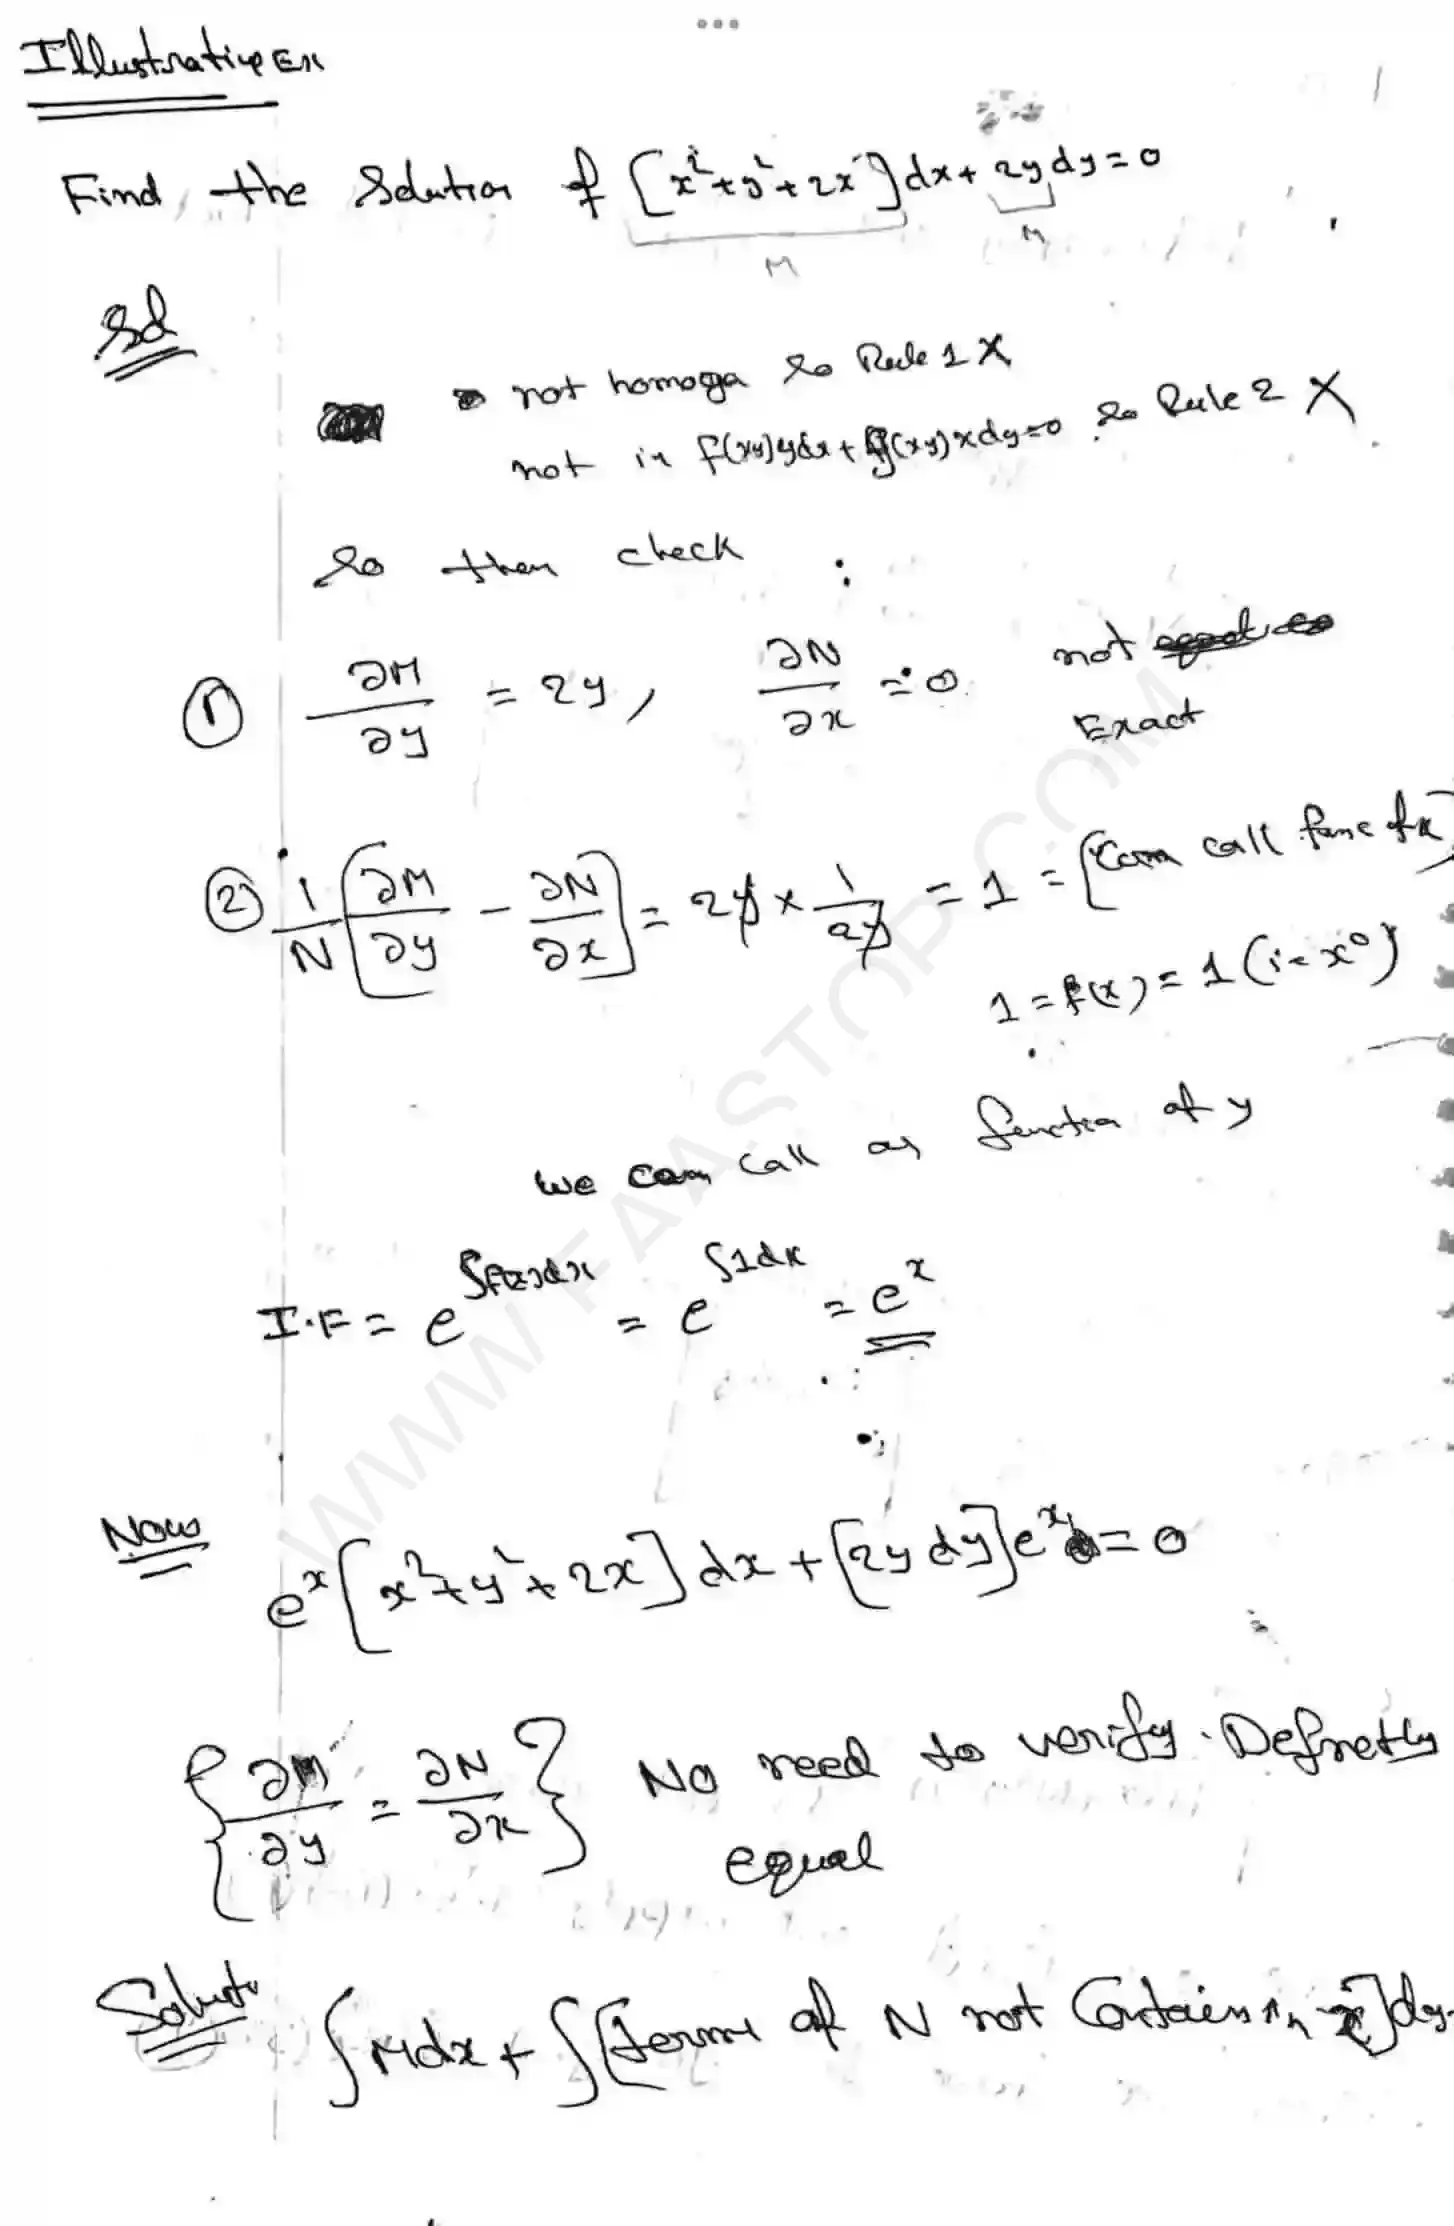 Illustrative Ex
Find the Solution of [x²+y²+2x]dx+ 2y dy=0
M
M
Sol
not homoga So Rule 1 X
not in f(xy)ydx+g(xy)xdy=0 So Rule 2 X
So then check :
① ∂M/∂y = 2y, ∂N/∂x = 0 not
Exact
② 1/N [∂M/∂y − ∂N/∂x] = 2y × 1/2y = 1 = {can call func of x}
1 = f(x) = 1 (i.e x⁰)
we can call as function of y
I.F = e^∫f(x)dx = e^∫1dx = e^x
Now
e^x [x²+y²+2x] dx + [2y dy] e^x = 0
{∂M/∂y = ∂N/∂x} No need to verify. Defnetly
equal
Solut
∫Mdx + ∫[terms of N not Contains in x]dy
WWW.FAASTOP.COM